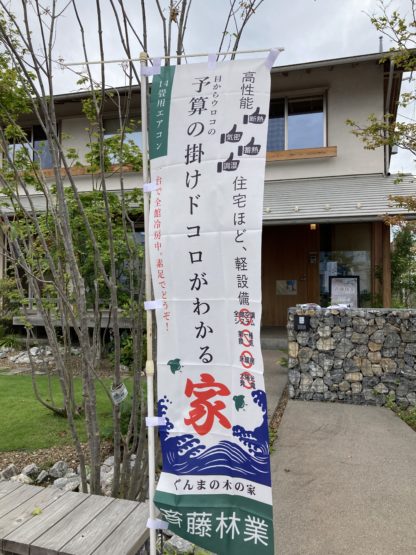 高性能
断熱
気密
蓄熱
調湿
住宅ほど、軽設備
目からウロコの
予算の掛けドコロがわかる
家
14畳用エアコン
一台で全館冷房中。素足でどうぞ！
ぐんまの木の家
斉藤林業